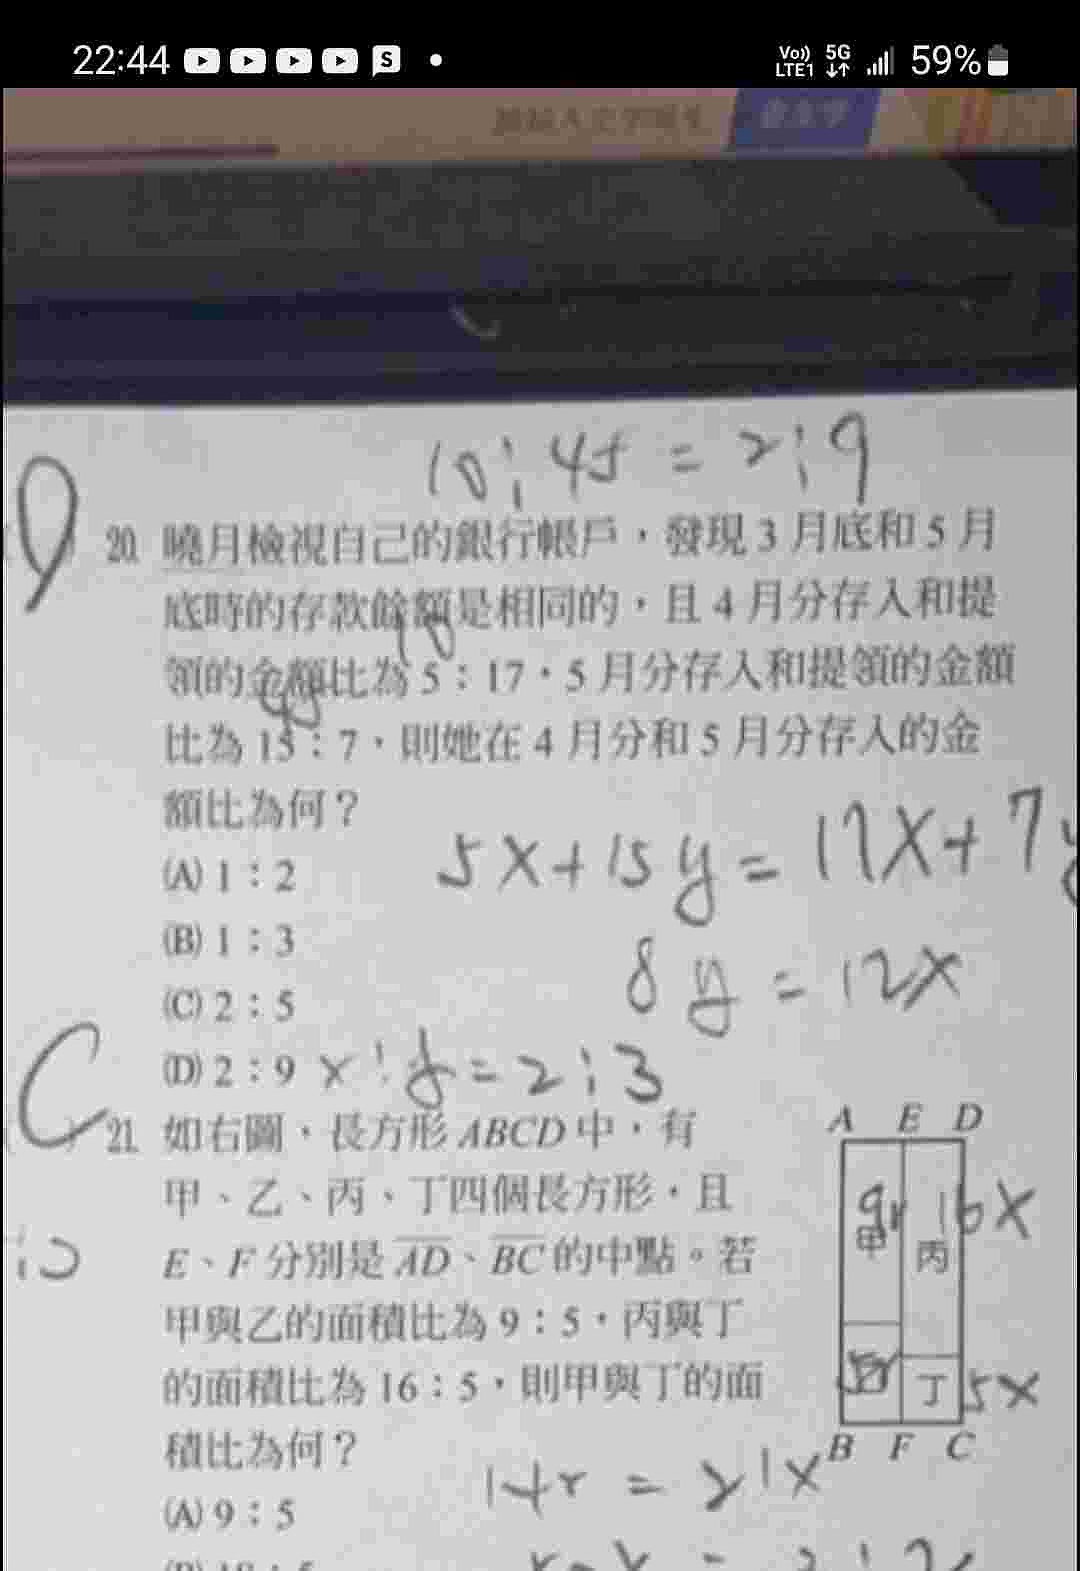 22:44
Vo)) LTE1 5G 59%
10:45=2:9
D
20. 曉月檢視自己的銀行帳戶，發現 3 月底和 5 月
底時的存款餘額是相同的，且 4 月分存入和提
10
領的金額比為 5：17，5 月分存入和提領的金額
45
比為 15：7，則她在 4 月分和 5 月分存入的金
額比為何？
5x+15y=17x+7y
(A) 1：2
(B) 1：3
8y=12x
(C) 2：5
(D) 2：9 x:y=2:3
C
21. 如右圖，長方形 ABCD 中，有
甲、乙、丙、丁四個長方形，且
E、F 分別是 AD、BC 的中點。若
甲與乙的面積比為 9：5，丙與丁
的面積比為 16：5，則甲與丁的面
積比為何？
A E D
9r 16x
甲 丙
5r
丁 5x
B F C
14r=21x
(A) 9：5